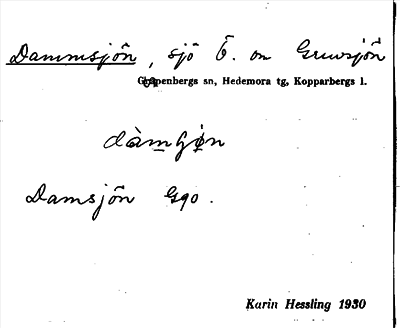 Dammsjön, sjö Ö. om Gruvsjön
Garpenbergs sn, Hedemora tg, Kopparbergs l.
Damsjön Gqo.
Karin Hessling 1930